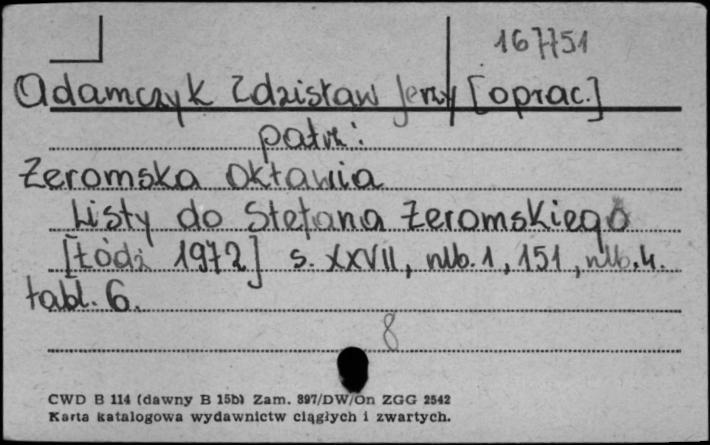 167751
Adamczyk Zdzisław Jerzy [oprac.]
patrz:
Żeromska Oktawia
Listy do Stefana Żeromskiego
[Łódź 1972] s. XXVII, nlb. 1, 151, nlb. 4.
tabl. 6.
8
CWD B 114 (dawny B 15b) Zam. 897/DW/On ZGG 2542
Karta katalogowa wydawnictw ciągłych i zwartych.